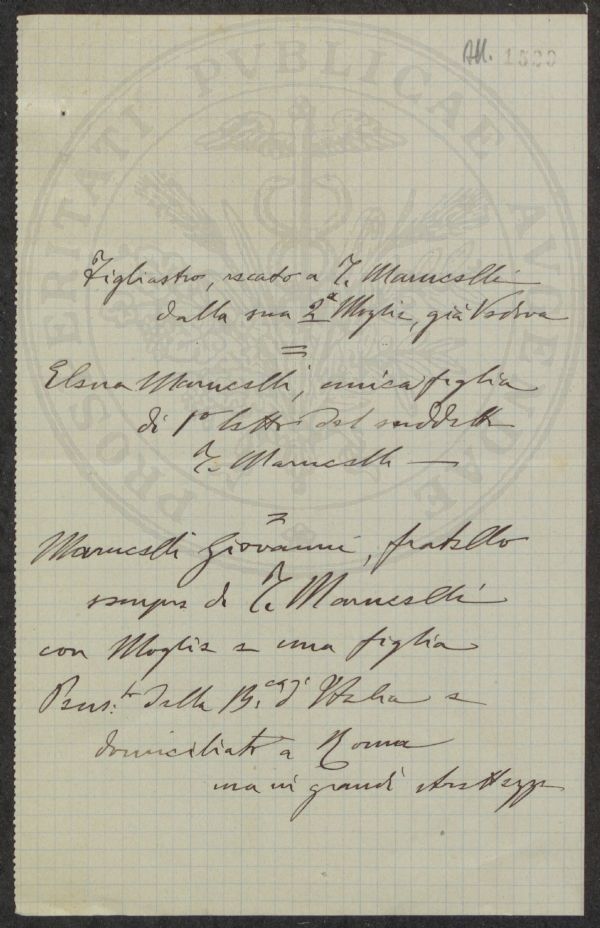 All. 1500
Figliastro, recato a T. Marucelli
dalla sua 2ª Moglie, già Vedova
=
Elena Marucelli, unica figlia
di 1º letto del suddetto
T. Marucelli —
=
Marucelli Giovanni, fratello
sempre di T. Marucelli
con Moglie e una figlia
Pens.to della B.ca d'Italia e
domiciliato a Roma
ma in grandi strettezze
PROSPERITATI PUBLICAE AUGENDAE